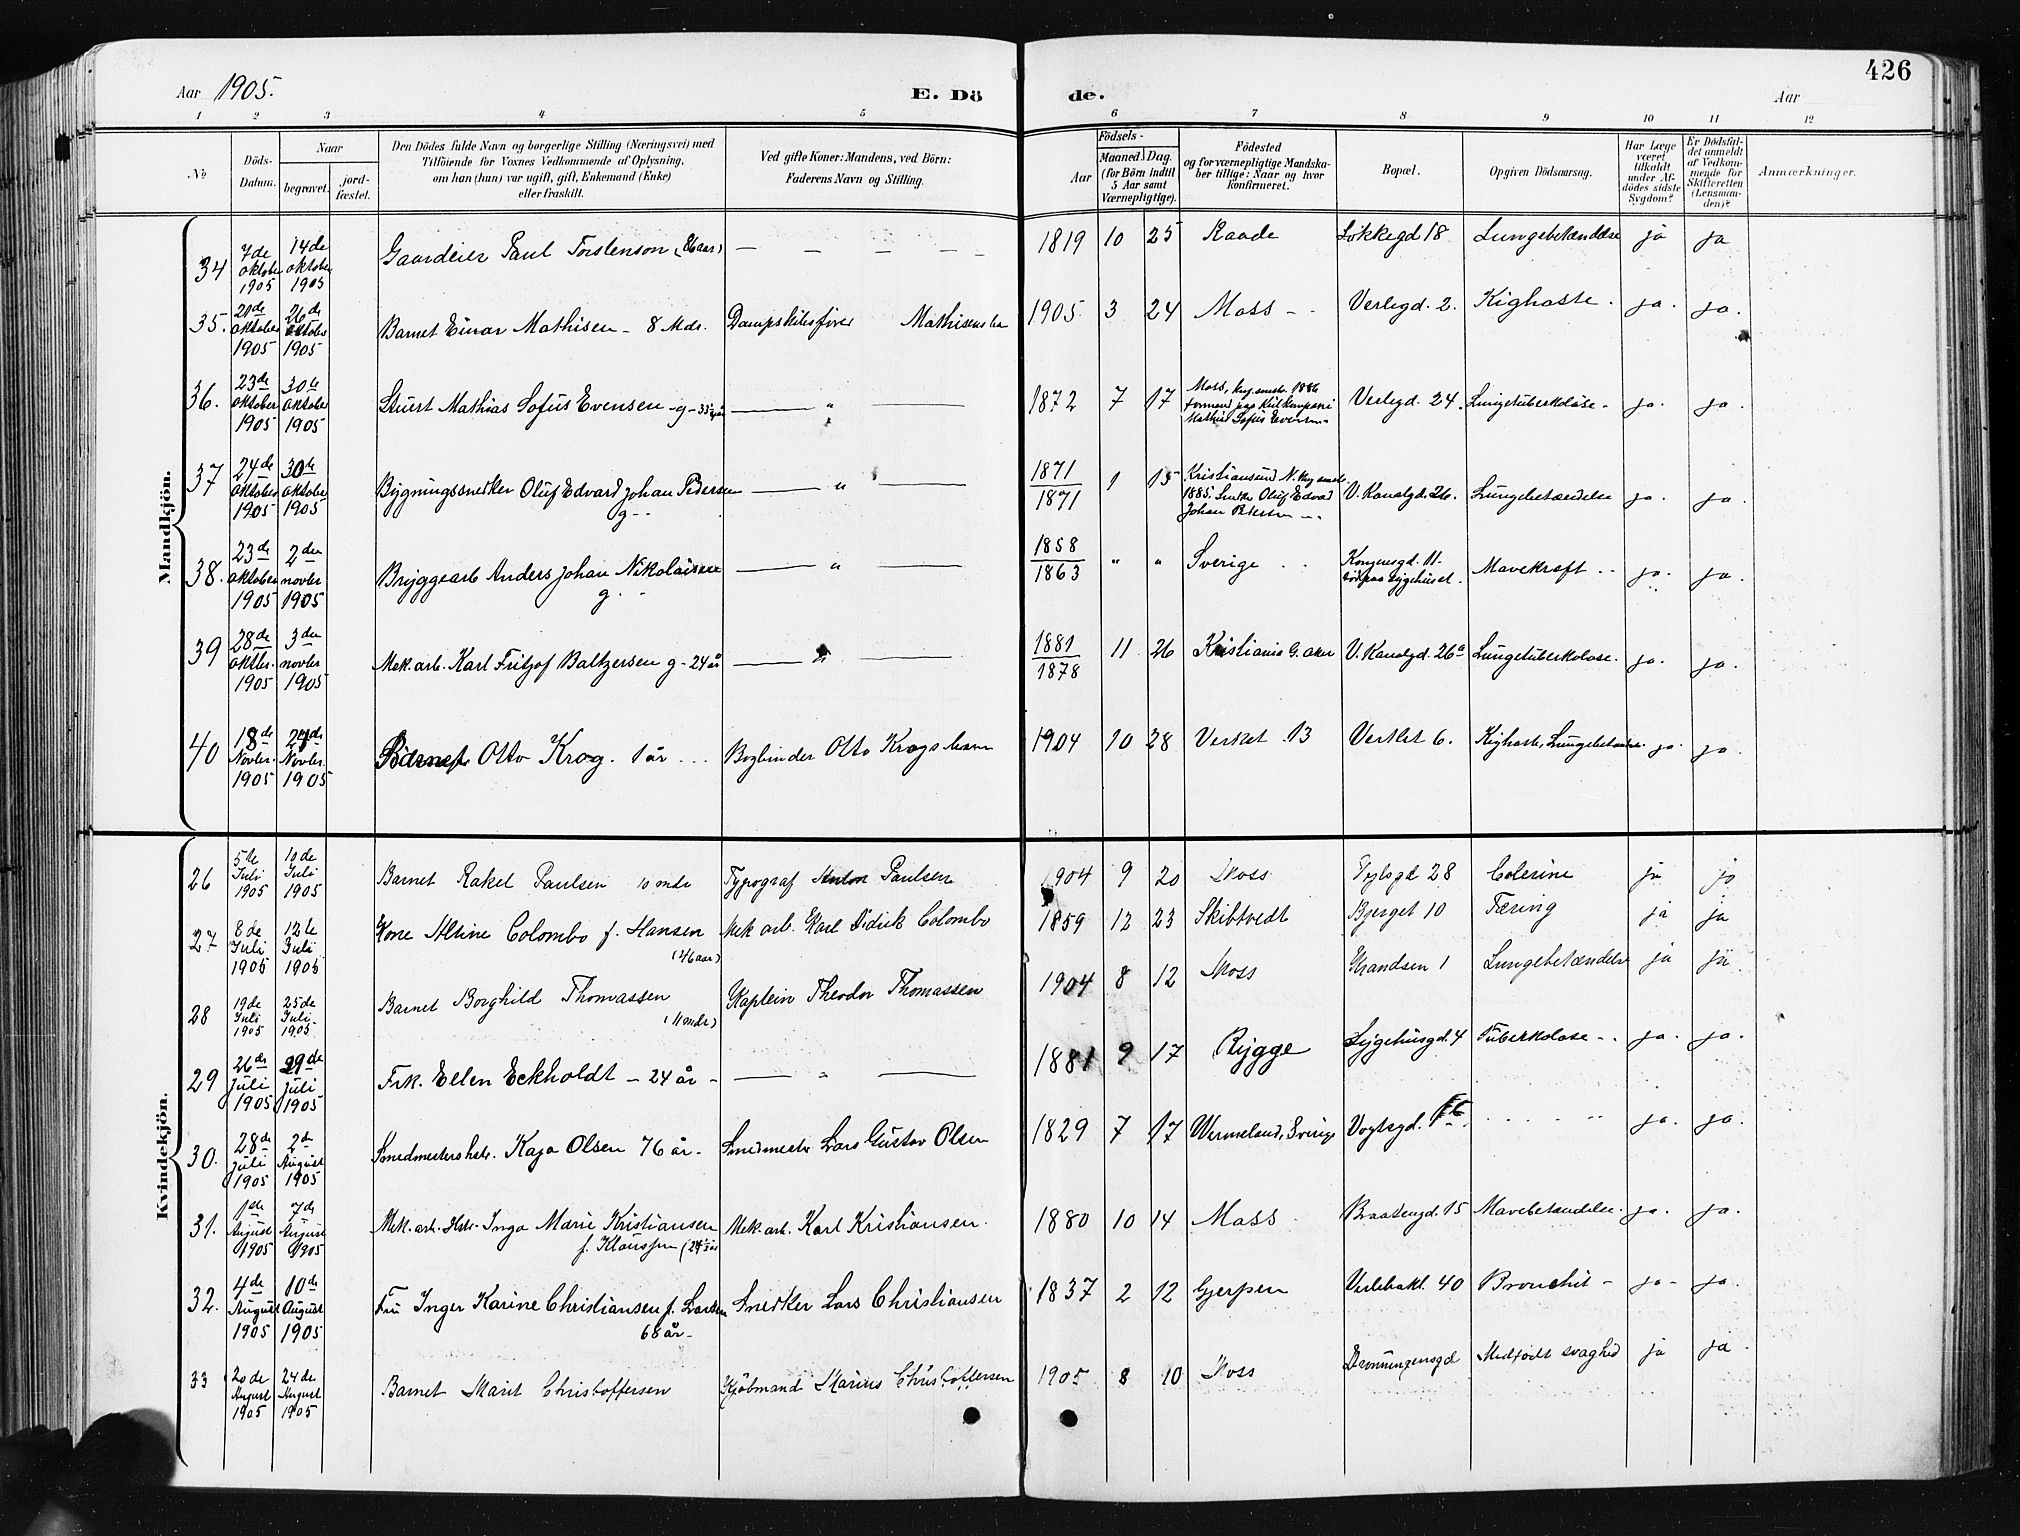 426
Aar 1905.
E. Dö
de.
Aar
1 2 3 4 5 6 7 8 9 10 11 12
No
Döds-
Datum.
Naar
begravet.
jord-
fæstet.
Den Dödes fulde Navn og borgerlige Stilling (Næringsvei) med
Tilföiende for Voxnes Vedkommende af Oplysning,
om han (hun) var ugift, gift, Enkemand (Enke)
eller fraskilt.
Ved gifte Koner: Mandens, ved Börn:
Faderens Navn og Stilling.
Födsels-
Aar
Maaned. Dag.
(for Börn indtil
5 Aar samt
Værnepligtige).
Födested
og for værnepligtige Mandska-
ber tillige: Naar og hvor
konfirmeret.
Bopæl.
Opgiven Dödsaarsag.
Har Læge
været
tilkaldt
under Af-
dödes sidste
Sygdom?
Er Dödsfal-
det anmeldt
af Vedkom-
mende for
Skifteretten
(Lensman-
den)?
Anmærkninger.
Mandkjön.
34 7de oktober 1905 14de oktober 1905 Gaardeier Paul Torstenson (86 aar) — — — — 1819 10 25 Raade Løkkegd 18 Lungebetændelse ja ja
35. 21de oktober 1905 26de oktober 1905 Barnet Einar Mathisen - 8 Mdr. Dampskibsfører Mathisens 1905 3 24 Moss - - Verlegd. 2. Kighoste. ja. ja.
36. 23de oktober 1905 30te oktober 1905 Stuert Mathias Sofus Evensen - g - — " — 1872 7 17 Moss, 1886 Mathias Sofus Evensen Verlegd. 24. Lungetuberkulose. ja. ja.
37 24de oktober 1905 30te oktober 1905 Bygningssnedker Oluf Edvard Johan Pedersen g - — " — 1871 1871 1 15 Kristiansund N. 1885. Oluf Edvard Johan V. Kanalgd. 26. Lungebetændelse ja. ja.
38. 23de oktober 1905 2den novbr 1905 Bryggearb Anders Johan Nikolaisen g. — " — 1858 1863 " " Sverige Kongensgd. 11. sygehuset. Mavekræft ja. ja.
39 28de oktbr. 1905 3den novbr 1905 Mek. arb. Karl Fritjof Baltzersen g - 24 år — " — 1881 1878 11 26 Kristiania G. aker V. Kanalgd. 26a Lungetuberkulose. ja. ja.
40 18de Novbr. 1905 24de Novbr. 1905 Barnet Otto Krog. 1 år Bogbinder Otto Krogs barn 1904 10 28 Verket 13 Verket 6. Kighoste, ja. ja.
Kvindekjön.
26 5te Juli 1905 10de Juli 1905 Barnet Rakel Paulsen 10 mdr Typograf Anton Paulsen 1904 9 20 Moss 28 Colerine ja ja
27 8de Juli 1905 12te Juli 1905 Kone Alvine Colombo f. Hansen (46 aar) Mek arb. Karl Didrik Colombo 1859 12 23 Skibtvedt Bjerget 10 Tæring ja ja
28 19de Juli 1905 25de Juli 1905 Barnet Borghild Thomassen (11 mdr) Kaptein Theodor Thomassen 1904 8 12 Moss 1 Lungebetændelse ja ja
29 26de juli 1905 29de juli 1905 Frk. Ellen Eckholdt - 24 år - — " — 1881 9 17 Rygge Sygehusgd. 4 Tuberkulose - . ja. ja.
30. 28de juli 1905 2de August 1905 Smedmesters hstr. Kaja Olsen 76 år. Smedmester Lars Gustav Olsen 1829 7 17 Wermeland, Sverige Vogtsgd. ja. ja.
31. 1ste August 1905 7de August 1905 Mek. arb. Hstr. Inga Marie Kristiansen f. Klaussen (24½ år Mek. arb. Karl Kristiansen. 1880 10 14 Moss Braatengd. 15 Mavebetændelse. ja. ja.
32. 4de August 1905 10de August 1905 Fru Inger Karine Christiansen f. Larsen 68 år - Snedker Lars Christiansen 1837 2 12 Gjerpen Verlebakk. 40 Bronchit - ja - ja.
33 20de August 1905 24de August 1905 Barnet Marit Christoffersen Kjøbmand Marius Christoffersen 1905 8 10 Moss Dronningensgd Medfødt svaghed ja ja